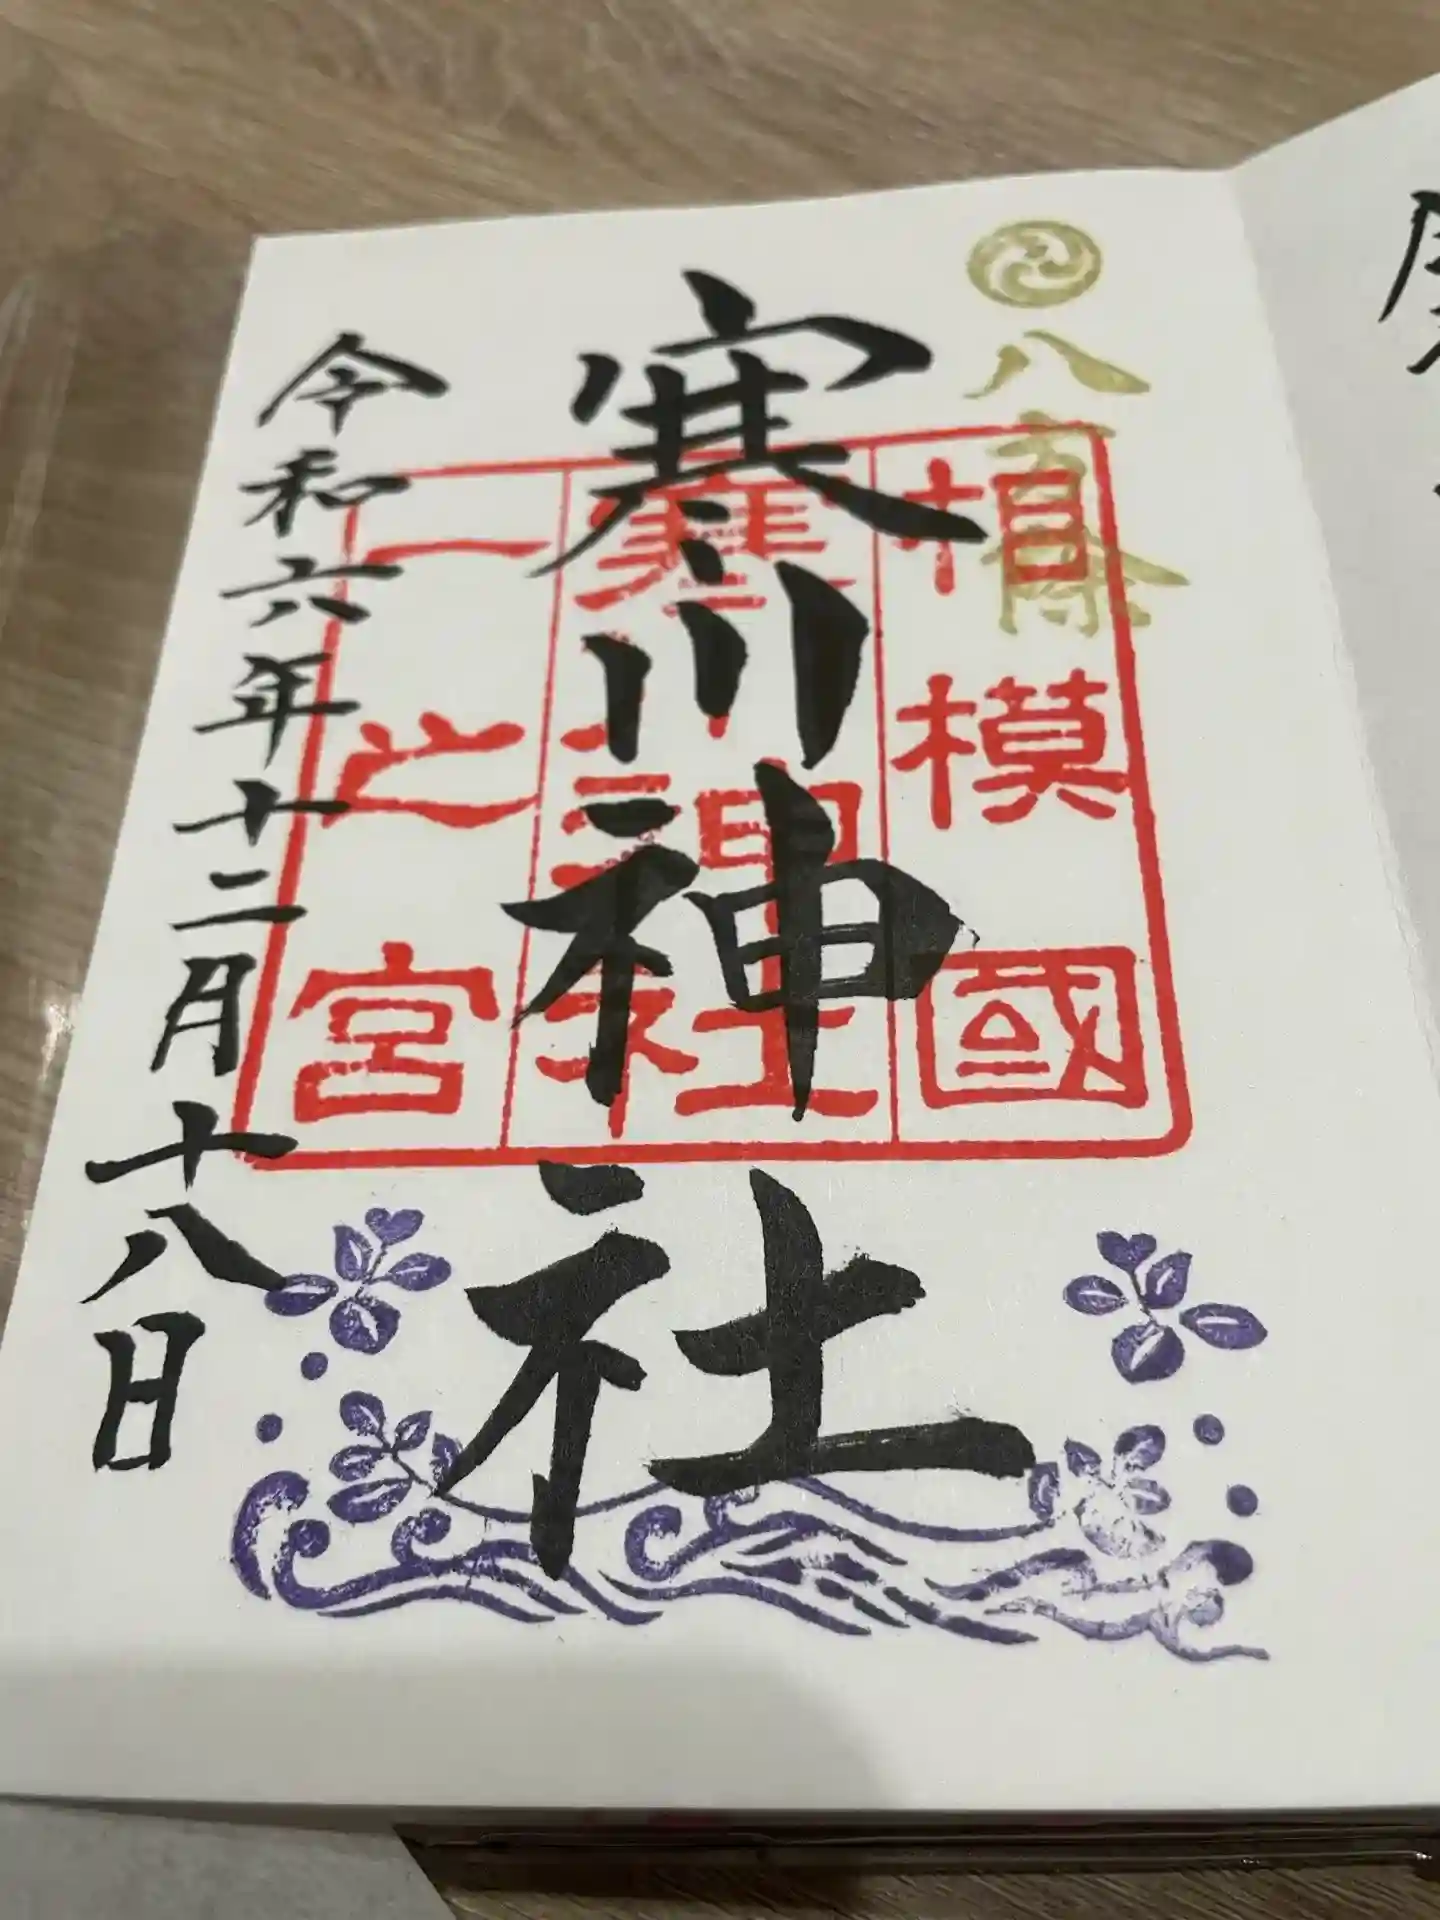 八方除
相模國
寒川神社
一之宮
寒川神社
令和六年十二月十八日